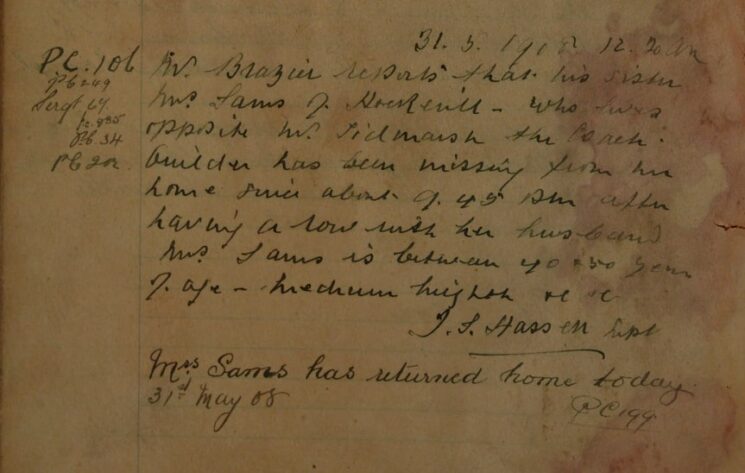 31. 5. 1908 12.20 am
P.C. 106
PC 249
Sergt 67
Pc. 935
Pc. 34
PC 202
Mr. Brazier reports that his sister
Mrs Sams of Hockerill - who lives
opposite Mr. Tidmarsh the Coach-
builder has been missing from her
home since about 9.45 pm after
having a row with her husband
Mrs Sams is between 40 & 50 years
of age - medium height &c &c
Supt
Mrs Sams has returned home today
31st May 08
PC 199